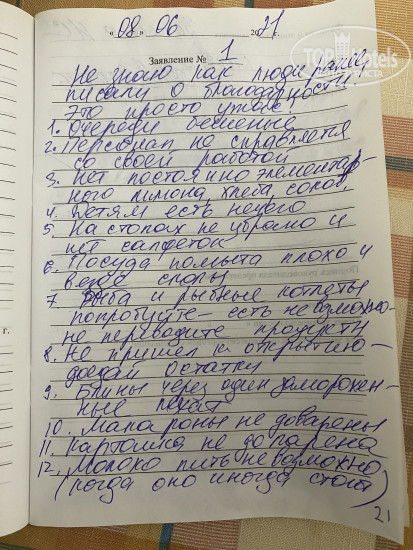 "08" 06 2021 г.
Заявление № 1
Не знаю как люди ранее
писали о благодарности
Это просто ужас
1. Очереди бешеные
2. Персонал не справляется
со своей работой
3. Нет постоянно элементар-
ного лимона, хлеба, соков,
4. Детям есть нечего
5. На столах не убрано и
нет салфеток
6. Посуда помыта плохо и
везде сколы
7. Рыба и рыбные котлеты
попробуйте - есть невозможно
не переводите продукты
8. Не пришел к открытию-
доедай остатки
9. Блины через один заморожен-
ные лежат
10. Макароны не доварены
11. Картошка не доварена
12. Молоко пить невозможно
(когда оно иногда стоит)
21
г.
TOP HOTELS